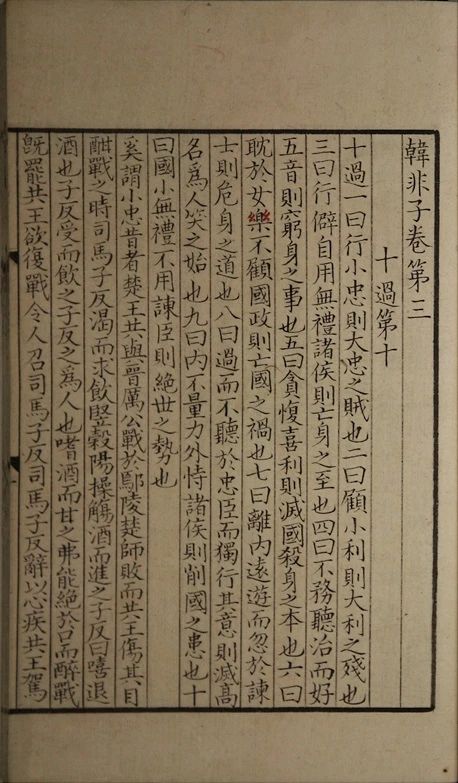 韓非子卷第三
十過第十
十過一曰行小忠則大忠之賊也二曰顧小利則大利之殘也
三曰行僻自用無禮諸侯則亡身之至也四曰不務聽治而好
五音則窮身之事也五曰貪愎喜利則滅國殺身之本也六曰
耽於女樂不顧國政則亡國之禍也七曰離內遠遊而忽於諫
士則危身之道也八曰過而不聽於忠臣而獨行其意則滅高
名為人笑之始也九曰內不量力外恃諸侯則削國之患也十
曰國小無禮不用諫臣則絕世之勢也
奚謂小忠昔者楚王共與晉厲公戰於鄢陵楚師敗而共王傷其目
酣戰之時司馬子反渴而求飲豎穀陽操觴酒而進之子反曰嘻退
酒也子反受而飲之子反之為人也嗜酒而甘之弗能絕於口而醉戰
既罷共王欲復戰令人召司馬子反司馬子反辭以心疾共王駕